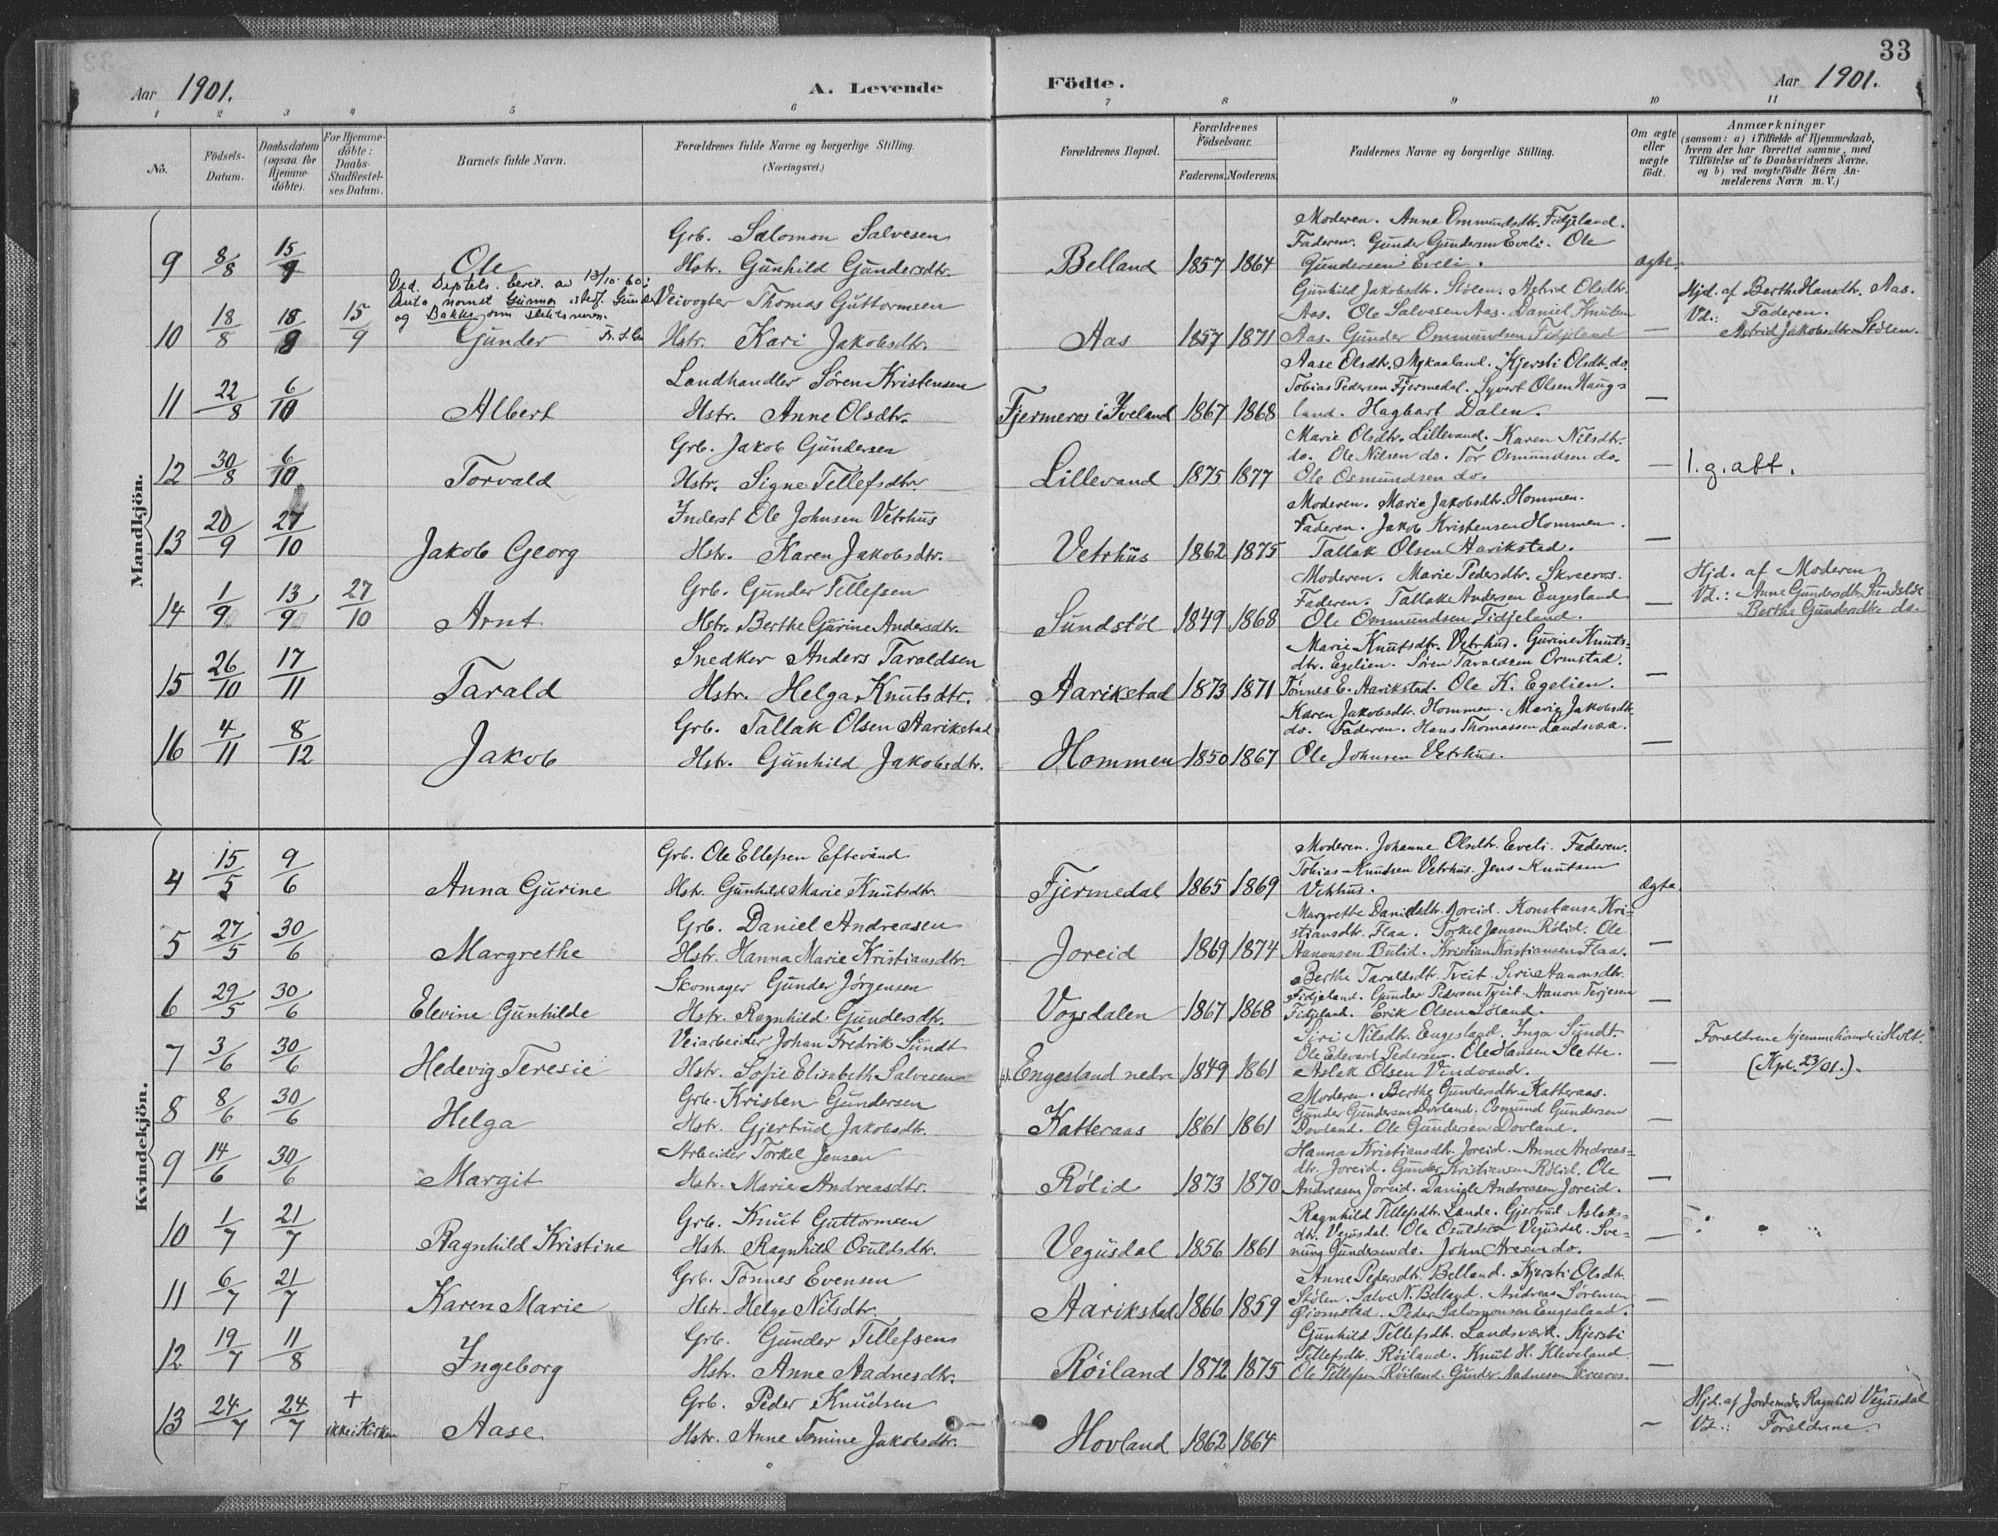 33
Aar 1901. A. Levende Födte. Aar 1901.
1 2 3 4 5 6 7 8 9 10 11
No. Födsels-Datum. Daabsdatum (ogsaa for Hjemmedøbte). For Hjemmedøbte: Daabs-Stadfæstelses Datum. Barnets fulde Navn. Forældrenes fulde Navne og borgerlige Stilling. (Næringsvei.) Forældrenes Bopæl. Forældrenes Födselsaar. Faderens. Moderens. Faddernes Navne og borgerlige Stilling. Om ægte eller uægte födt. Anmærkninger (saasom: a) i Tilfælde af Hjemmedaab, hvem der har forrettet samme, med Tilföielse af to Daabsvidners Navne. og b) ved uægtefödte Börn Anmelderens Navn m. V.)
Mandkjön.
Grb. Salomon Salvesen
Moderen. Anne Ommundsdtr. Fidjeland.
Faderen. Gunder Gundersen Eveli. Ole
9 8/8 15/9 Ole Hstr. Gunhild Gundersdtr. Belland 1857 1864 Gundersen Eveli. ægte
Ved Deptets. bevit. av 13/10-60:
Veivogter Thomas Guttormsen
Gunhild Jakobsdtr. Stölen. Astrid Olsdtr.
Aas. Ole Salvesen Aas. Daniel Knutsen
Hjd. af Berthe Hansdtr. Aas.
Vd.: Faderen.
Astrid Jakobsdtr. Stölen.
10 18/8 18/8 15/9 Gunder Hstr. Kari Jakobsdtr. Aas 1857 1871 Aas. Gunder Ommundsen Fidjeland —
Landhandler Sören Kristensen
Aase Olsdtr. Mykaaland. Kjersti Olsdtr. do.
Tobias Pedersen Fjermedal. Syvert Olsen Haug-
11 22/8 6/10 Albert Hstr. Anne Olsdtr. Fjermeros i Iveland 1867 1868 land. Hagbart Dalen. —
Grb. Jakob Gundersen
Marie Olsdtr. Lillevand. Karen Nilsdtr.
do. Ole Nilsen do. Tor Osmundsen do.
12 30/8 6/10 Torvald Hstr. Signe Tellefsdtr. Lillevand 1875 1877 Ole Osmundsen do. — l. g. att.
Inderst Ole Johnsen Vetrhus
Moderen. Marie Jakobsdtr. Hommen.
Faderen. Jakob Kristensen Hommen.
13 20/9 27/10 Jakob Georg Hstr. Karen Jakobsdtr. Vetrhus 1862 1875 Tallak Olsen Aarikstad. —
Grb. Gunder Tellefsen
Moderen. Marie Pedersdtr. Skreros.
Faderen. Tallak Andersen Engesland
Hjd. af Moderen
Vd.: Anne Gundersdtr. Sundstöl
Berthe Gundersdtr. do.
14 1/9 13/9 27/10 Arnt Hstr. Berthe Gurine Andersdtr. Sundstöl 1849 1868 Ole Ommundsen Fidjeland. —
Snedker Anders Taraldsen
Marie Knutsdtr. Vetrhus. Gurine Knuts-
dtr. Egelien. Sören Taraldsen Ormstad.
15 26/10 17/11 Tarald Hstr. Helga Knutsdtr. Aarikstad 1873 1871 Tönnes E. Aarikstad. Ole K. Egelien. —
Grb. Tallak Olsen Aarikstad
Karen Jakobsdtr. Hommen. Marie Jakobsdtr.
do. Faderen. Hans Thomassen Landsvaa.
16 4/11 8/12 Jakob Hstr. Gunhild Jakobsdtr. Hommen 1850 1867 Ole Johnsen Vetrhus. —
Kvindekjön.
Grb. Ole Ellefsen Eftevand
Moderen. Johanne Olsdtr. Eveli. Faderen.
Tobias Knudsen Vetrhus. Jens Knutsen
4 15/5 9/6 Anna Gurine Hstr. Gunhild Marie Knutsdtr. Fjermedal 1865 1869 Vetrhus. ægte
Grb. Daniel Andreasen
Margrethe Danielsdtr. Joreid. Konstanse Kri-
stiansdtr. Flaa. Torkel Jensen Rölid. Ole
5 27/5 30/6 Margrethe Hstr. Hanna Marie Kristiansdtr. Joreid 1869 1874 Aanonsen Bulid. Kristian Kristiansen Flaa. —
Skomager Gunder Jörgensen
Berthe Taraldsdtr. Tveit. Siri Aanonsdtr.
Fidjeland. Gunder Pedersen Tveit. Aanon Terjesen
6 29/5 30/6 Elevine Gunhilde Hstr. Ragnhild Gundersdtr. Vogsdalen 1867 1868 Fidjeland. Erik Olsen Loland. —
Veiarbeider Johan Fredrik Sundt
Siri Nilsdtr. Engesland. Inga Sundt.
Ole Edvart Pedersen. Ole Hansen Slette.
Forældrene hjemmehörende i Holt.
(Kpl. 23/01.).
7 3/6 30/6 Hedevig Teresie Hstr. Sofie Elisabeth Salvesen Engesland nedre 1849 1861 Aslak Olsen Vindvand. —
Grb. Kristen Gundersen
Moderen. Berthe Gundersdtr. Katteraas.
Gunder Gundersen Dovland. Osmund Gundersen
8 8/6 30/6 Helga Hstr. Gjertrud Jakobsdtr. Katteraas 1861 1861 Dovland. Ole Gundersen Dovland. —
Arbeider Torkel Jensen
Hanna Kristiansdtr. Joreid. Anne Andreas-
dtr. Joreid. Gunder Kristiansen Rölid. Ole
9 14/6 30/6 Margit Hstr. Marie Andreasdtr. Rölid 1873 1870 Andreasen Joreid. Daniel Andreasen Joreid. —
Grb. Knut Guttormsen
Ragnhild Tellefsdtr. Lande. Gjertrud Aslaks-
dtr. Vegusdal. Ole Osuldsen Vegusdal. Sve-
10 1/7 21/7 Ragnhild Kristine Hstr. Ragnhild Osuldsdtr. Vegusdal 1856 1861 nung Gundersen do. John Aresen do. —
Grb. Tönnes Evensen
Anne Pedersdtr. Belland. Kjersti Olsdtr.
Stölen. Salve N. Belland. Andreas Sörensen
11 6/7 21/7 Karen Marie Hstr. Helge Nilsdtr. Aarikstad 1866 1859 Peder Salomonsen Engesland. —
Grb. Gunder Tellefsen
Gunhild Tellefsdtr. Landsværk. Kjersti
Tellefsdtr. Röiland. Knut H. Kleveland.
12 19/7 11/8 Ingeborg Hstr. Anne Aadnesdtr. Röiland 1872 1875 Ole Tellefsen Röiland. Gunder Aadnesen Skreros. —
Grb. Peder Knudsen
Hjd. af Jordemoder Ragnhild Vegusdal
Vd.: Forældrene.
13 24/7 24/7 + ikke i Kirken Aase Hstr. Anne Tomine Jakobsdtr. Hovland 1862 1864 —